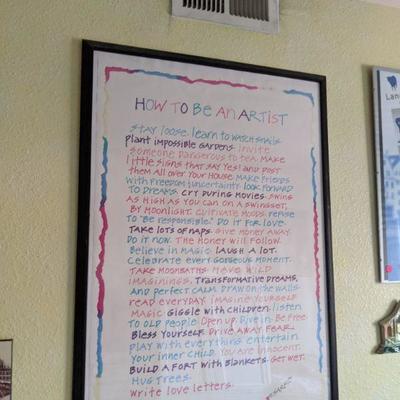 HOW TO BE AN ARTIST
STAY LOOSE. learn to WATCH SNAILS.
plant IMPOSSIBLE GARDENS. INVITE
someone DANGEROUS TO TEA. MAKE
little SIGNS THAT SAY Yes! AND POST
THEM All over Your House. MAKE FRIENDS
WITH FREEDOM & UNCERTAINTY. look FORWARD
TO DREAMS. CRY DURING MOVIES. SWING
AS HIGH AS YOU CAN ON A SWINGSET,
BY MOONLIGHT. CULTIVATE MOODS. refuse
TO "Be responsible." DO IT FOR LOVE.
TAKE LOTS OF NAPS. GIVE MONEY AWAY.
DO IT NOW. THE MONEY WILL FOLLOW.
Believe in MAGIC. LAUGH A LOT.
CELEBRATE every GORGEOUS MOMENT.
TAKE MOONBATHS. HAVE WILD
IMAGININGS, TRANSFORMATIVE DREAMS,
AND perfect CALM. DRAW ON THE WALLS.
READ everyday. IMAGINE YOURSELF
MAGIC. GIGGLE WITH CHILDREN. listen
TO OLD PEOPLE. Open up. Dive in. Be Free.
Bless Yourself. DRIVE AWAY FEAR.
PLAY WITH EVERYTHING. entertain
your inner CHILD. YOU ARE INNOCENT.
BUILD A FORT WITH BLANKETS. GET WET.
HUG TREES.
Write love letters.
Lan